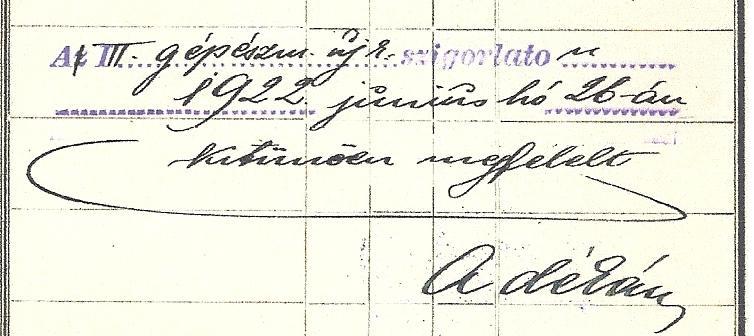 Az III. gépészm. új r. szigorlaton
1922. június hó 26-án
kitünően megfelelt
A dékán